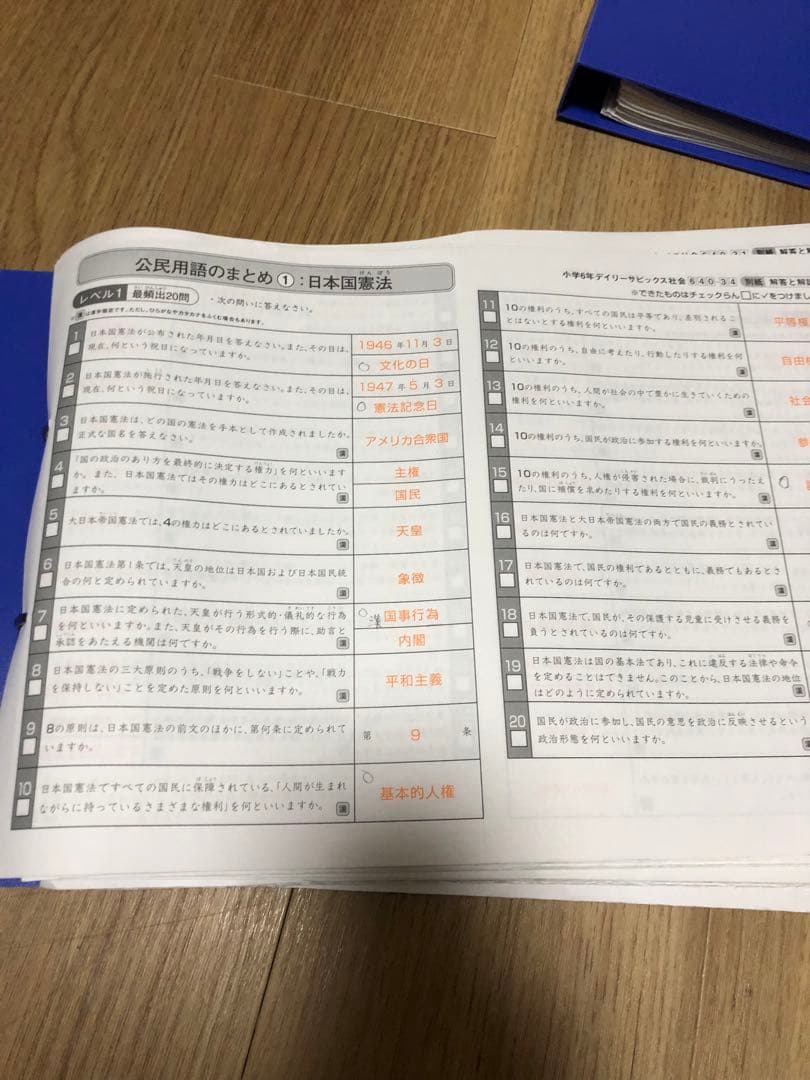 公民用語のまとめ①:日本国憲法
けんぽう
レベル1 最頻出20問
・次の問いに答えなさい。
※漢は漢字指定です。ただし、ひらがなやカタカナをふくむ場合もあります。
1 日本国憲法が公布された年月日を答えなさい。また、その日は、
現在、何という祝日になっていますか。
1946年11月3日
文化の日
2 日本国憲法が施行された年月日を答えなさい。また、その日は、
現在、何という祝日になっていますか。
1947年5月3日
憲法記念日
3 日本国憲法は、どの国の憲法を手本として作成されましたか。
正式な国名を答えなさい。 漢
アメリカ合衆国
4 「国の政治のあり方を最終的に決定する権力」を何といいます
か。また、日本国憲法ではその権力はどこにあるとされてい
ますか。 漢
主権
国民
5 大日本帝国憲法では、4の権力はどこにあるとされていましたか。
漢
天皇
6 日本国憲法第1条では、天皇の地位は日本国および日本国民統
合の何と定められていますか。 漢
象徴
7 日本国憲法に定められた、天皇が行う形式的・儀礼的な行為
を何といいますか。また、天皇がその行為を行う際に、助言と
承認をあたえる機関は何ですか。 漢
国事行為
内閣
8 日本国憲法の三大原則のうち、「戦争をしない」ことや、「戦力
を保持しない」ことを定めた原則を何といいますか。 漢
平和主義
9 8の原則は、日本国憲法の前文のほかに、第何条に定められて
いますか。
第 9 条
10 日本国憲法ですべての国民に保障されている、「人間が生まれ
ながらに持っているさまざまな権利」を何といいますか。 漢
基本的人権
小学6年デイリーサピックス社会 640-34 別紙 解答と解説
※できたものはチェックらん□に✓をつけまし
11 10の権利のうち、すべての国民は平等であり、差別されるこ
とはないとする権利を何といいますか。 漢
平等権
12 10の権利のうち、自由に考えたり、行動したりする権利を何
といいますか。 漢
自由
13 10の権利のうち、人間が社会の中で豊かに生きていくための
権利を何といいますか。 漢
社会
14 10の権利のうち、国民が政治に参加する権利を何といいますか。
漢
参
15 10の権利のうち、人権が侵害された場合に、裁判にうったえ
たり、国に補償を求めたりする権利を何といいますか。 漢
16 日本国憲法と大日本帝国憲法の両方で国民の義務とされてい
るのは何ですか。 漢
17 日本国憲法で、国民の権利であるとともに、義務でもあるとさ
れているのは何ですか。 漢
18 日本国憲法で、国民が、その保護する児童に受けさせる義務を
負うとされているのは何ですか。 漢
19 日本国憲法は国の基本法であり、これに違反する法律や命令
を定めることはできません。このことから、日本国憲法の地位
はどのように定められていますか。 漢
20 国民が政治に参加し、国民の意思を政治に反映させるという
政治形態を何といいますか。 漢